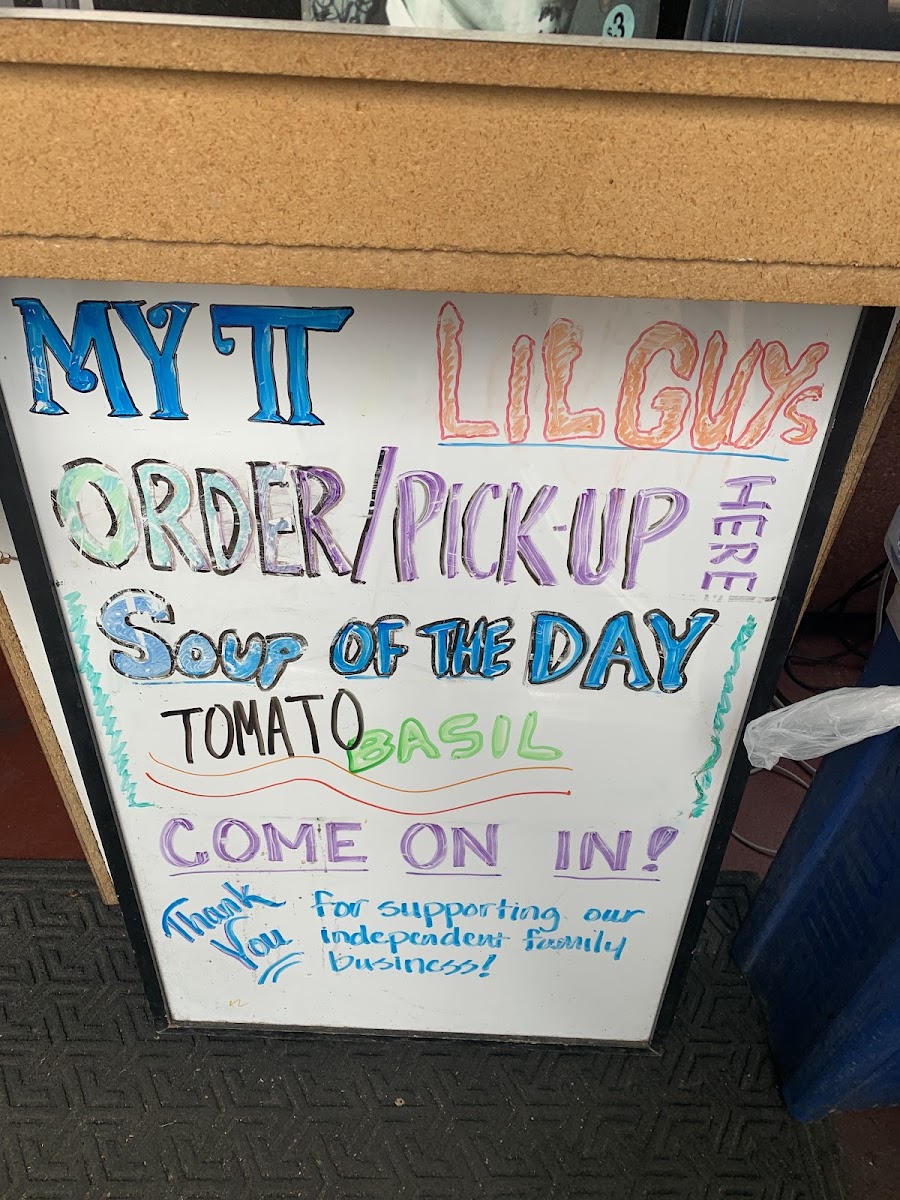 $.3
MY π LIL GUYs
ORDER/PiCK-UP HERE
Soup OF THE DAY
TOMATO BASIL
COME ON IN!
Thank You for supporting our
independent family
business!